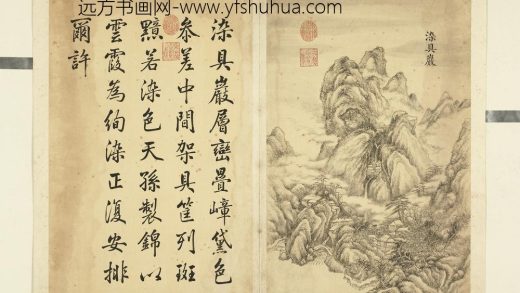 远方书画网-www.yfshuhua.com
染具巖
染具巖層巒疊嶂黛色
参差中間架具筐列斑
黯若染色天孫製錦以
雲霞為絢染正復安排
爾許